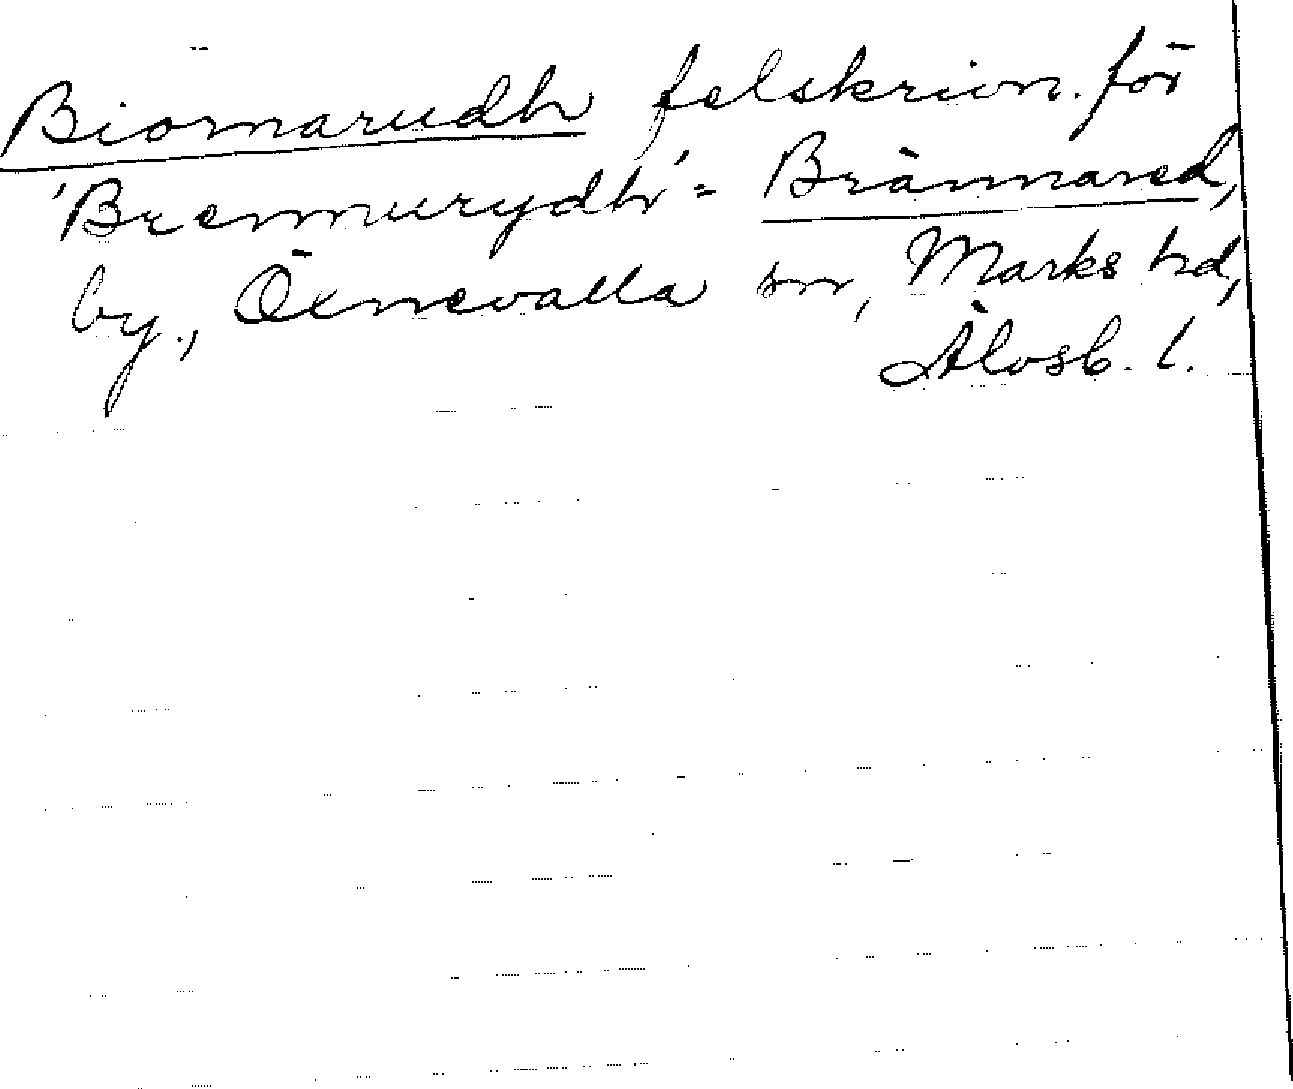 Biornarudh felskrivn. för
'Brennurydh' = Brännared,
by, Öxnevalla sn, Marks hd,
Älvsb. l.